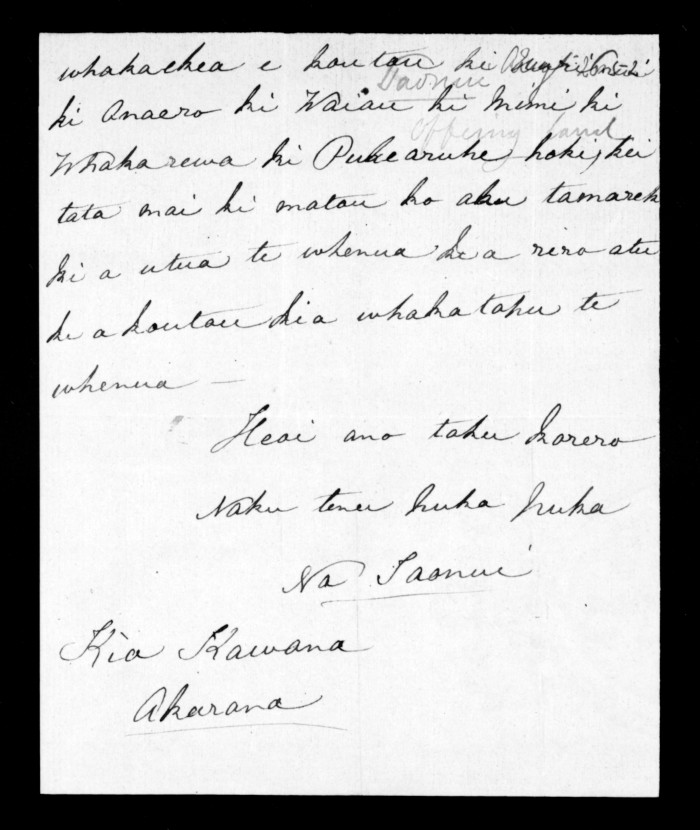 whakaekea e koutou ki
Taonui
ki Anaero ki Waiau ki Mimi ki
Offering land
Whakarewa ki Pukearuhe, hoki, kei
tata mai ki matou ko aku tamarek
ki a utua te whenua kia riro atu
ki a koutou kia whakatahu te
whenua —
Heoi ano taku korero
Naku tenei huka huka
Na Taonui
Kia Kawana
Akarana